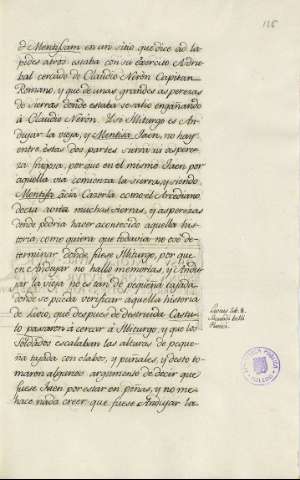 126
de Mentissam en un sitio que dice ad la-
pides atros estaba con su exercito Asdru-
bal cercado de Claudio Nerón Capitan
Romano, y que de unas grandes asperezas
de sierras donde estaba se salio engañando
à Claudio Nerón. Si Illiturgo es An-
dujar la vieja, y Mentisa Jaen, no hay
entre estas dos partes sierra ni aspere-
za fragosa, porque en el mismo Jaen por
aquella via comienza la sierra, y siendo
Mentisa àcia Cazorla como el Arcediano
decia havia muchas sierras, y asperezas
donde podria haver acontecido aquella his-
toria, como quiera que todavia no osè de-
terminar donde fuese Illiturgo, por que
en Andujar no hallo memorias, y Andu-
jar la vieja no es tan de pequeña tajada,
donde se pueda verificar aquella historia
de Livio, que despues de destruida Castu-
lo pasaron à cercar à Illiturgo, y que los
Soldados escalaban las alturas de peque-
ña tajada con clabos, y puñales, y desto to-
maron algunos argumento de decir que
fuese Jaen por estar en peñas, y no me
hace nada creer que fuese Andujar la
Livius lib. 8.
BIBLIOTECA PUBLICA
TOLEDO